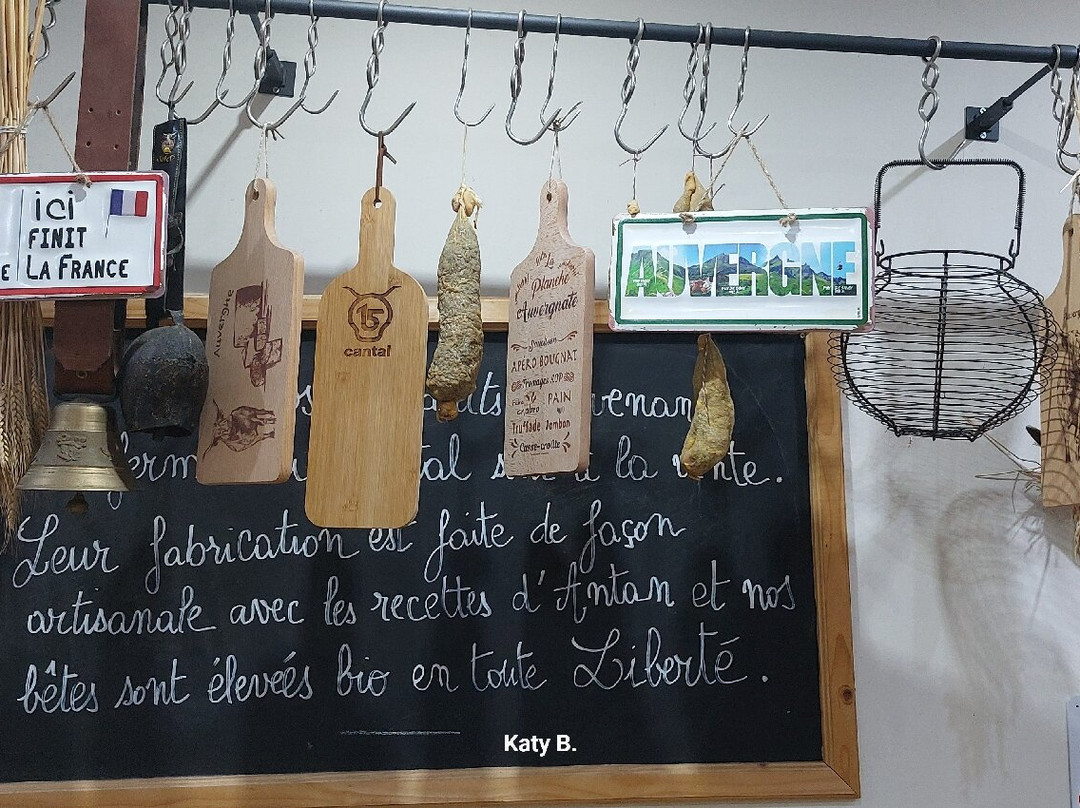 ici
FINIT
E LA FRANCE
Auvergne
15
cantal
La
Planche
Auvergnate
Saucisson
APÉRO BOUGNAT
Fromages AOP
PAIN
Truffade Jambon
Casse-croûte
AUVERGNE
la vente.
Leur fabrication est faite de façon
artisanale avec les recettes d'Antan et nos
bêtes sont élevées bio en toute Liberté.
Katy B.